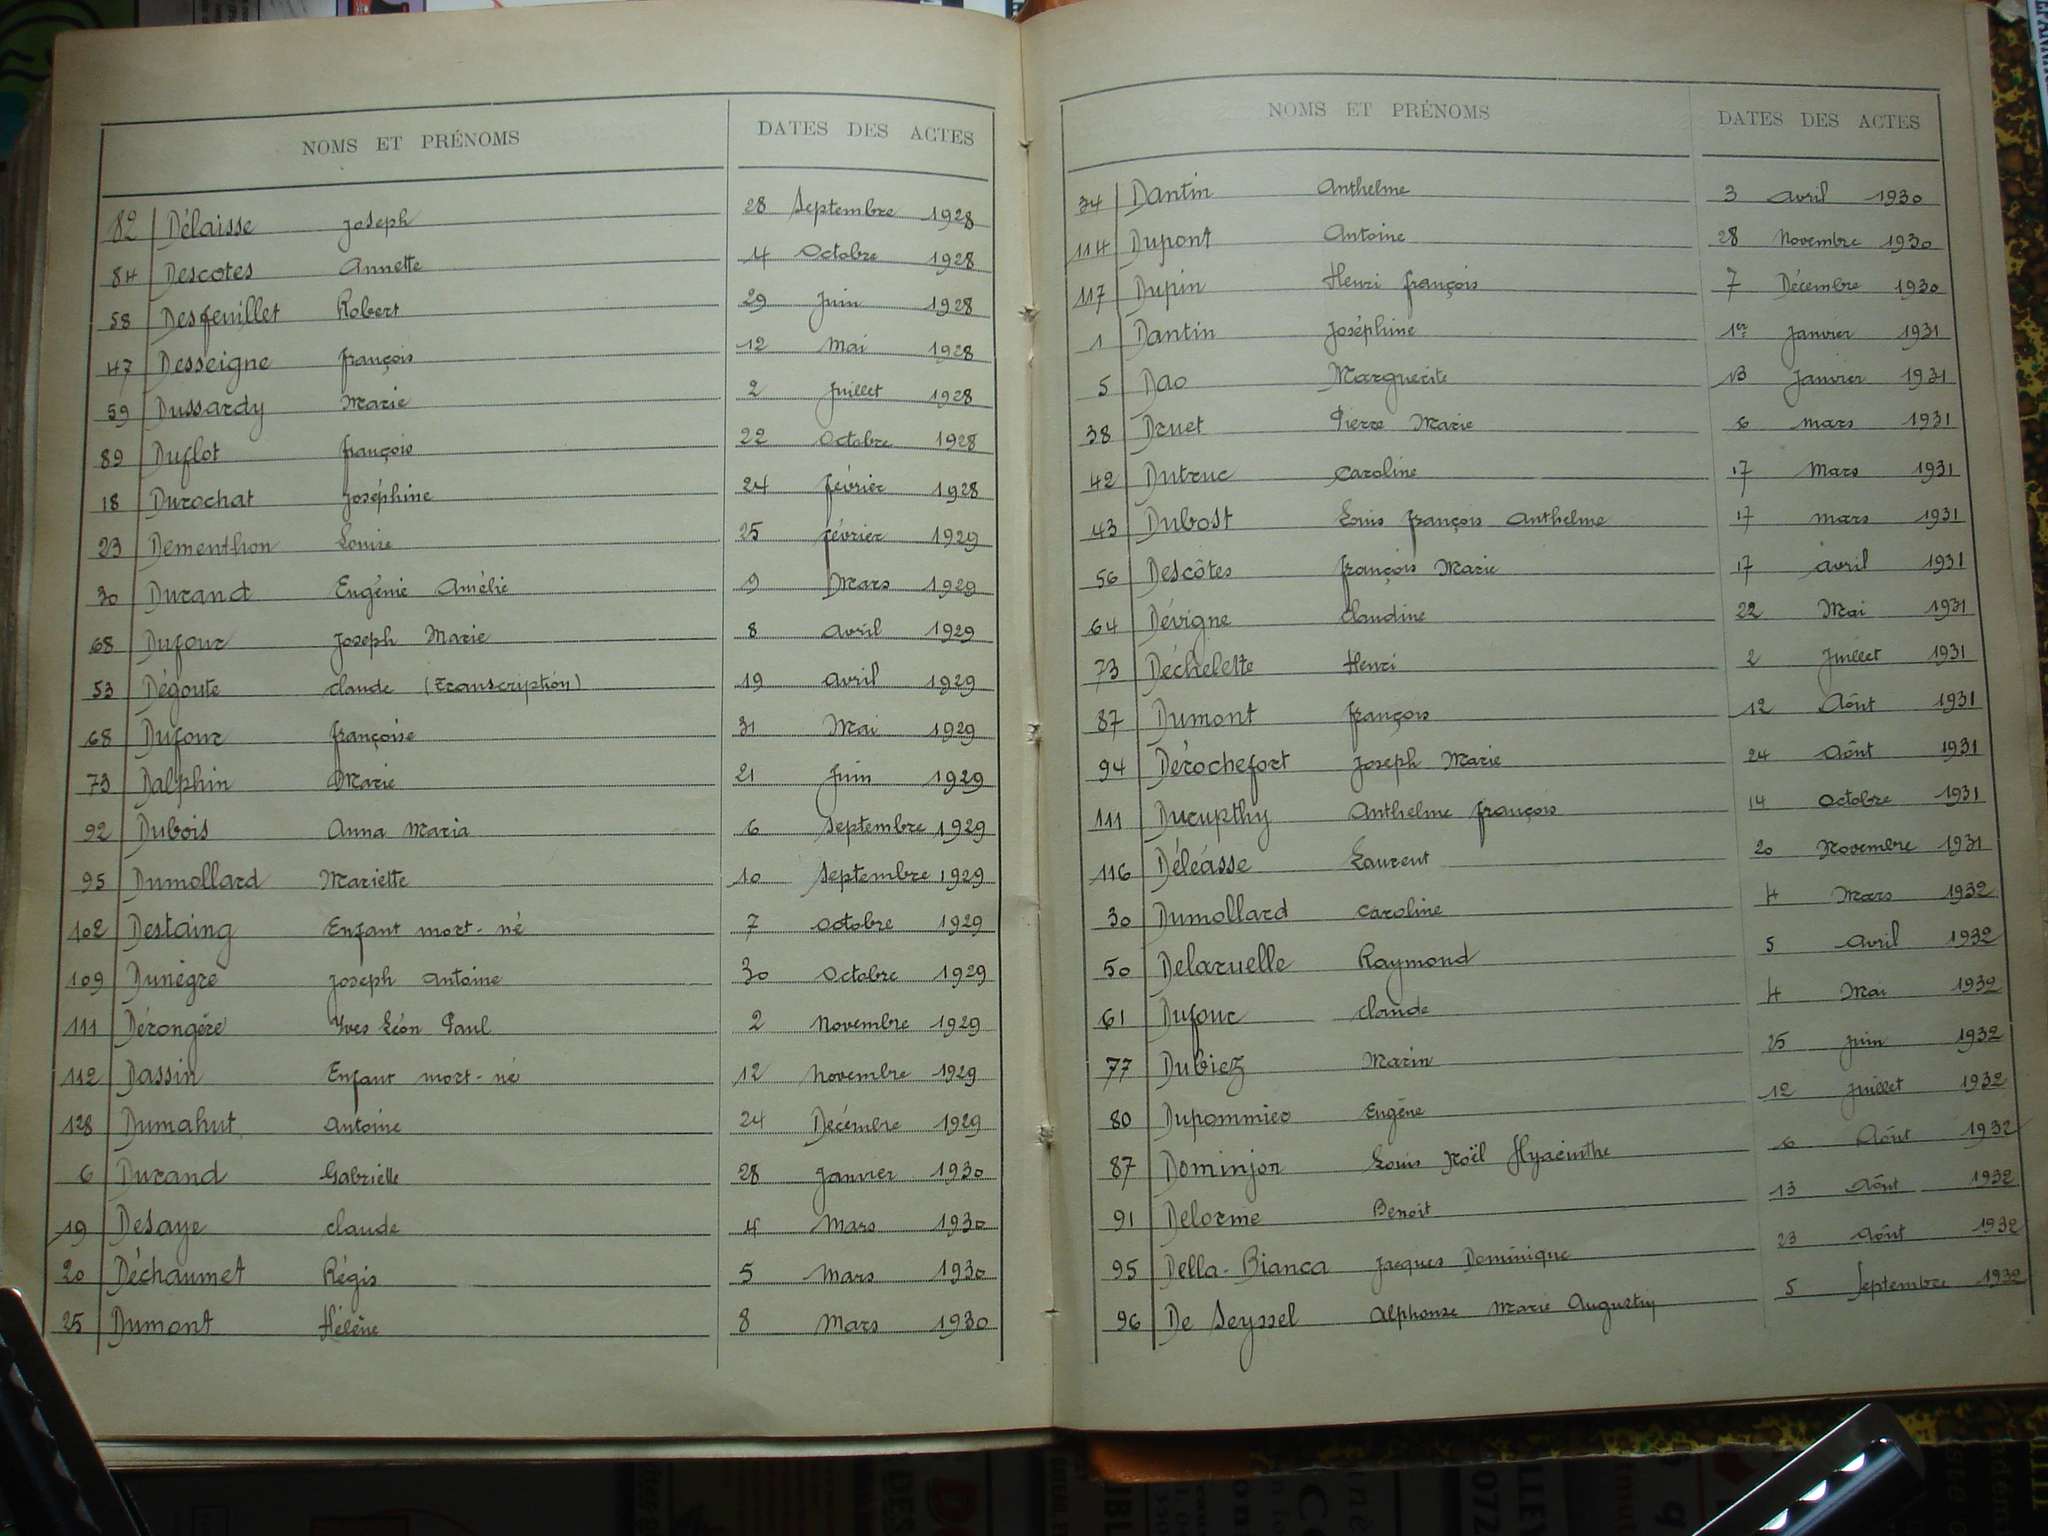 NOMS ET PRÉNOMS DATES DES ACTES
82 Délaisse Joseph 28 Septembre 1928
84 Descotes Annette 4 Octobre 1928
58 Desfeuillet Robert 29 Juin 1928
47 Desseigne françois 12 Mai 1928
59 Dussardy Marie 2 Juillet 1928
89 Duflot françois 22 Octobre 1928
18 Durochat Joséphine 24 février 1928
23 Dementhon Louise 25 février 1929
30 Durand Eugénie Amélie 9 Mars 1929
68 Dufour Joseph Marie 8 Avril 1929
53 Dégoute Claude (Transcription) 19 Avril 1929
68 Dufour françoise 31 Mai 1929
73 Dalphin Marie 21 Juin 1929
92 Dubois Anna Maria 6 Septembre 1929
95 Dumollard Mariette 10 Septembre 1929
102 Destaing Enfant mort-né 7 Octobre 1929
109 Dunègre Joseph Antoine 30 Octobre 1929
111 Dérongère Yves Léon Paul 2 Novembre 1929
112 Dassin Enfant mort-né 12 Novembre 1929
128 Dumahut Antoine 24 Décémbre 1929
6 Durand Gabrielle 28 Janvier 1930
19 Desaye Claude 4 Mars 1930
20 Déchaumet Régis 5 Mars 1930
25 Dumont Hélène 8 Mars 1930
NOMS ET PRÉNOMS DATES DES ACTES
34 Dantin Anthelme 3 Avril 1930
114 Dupont Antoine 28 Novembre 1930
117 Dupin Henri françois 7 Décembre 1930
1 Dantin Joséphine 1er Janvier 1931
5 Dao Marguerite 13 Janvier 1931
38 Druet Pierre Marie 6 Mars 1931
42 Dutruc Caroline 17 Mars 1931
43 Dubost Louis françois Anthelme 17 Mars 1931
56 Descôtes françois Marie 17 Avril 1931
64 Dévigne Claudine 22 Mai 1931
73 Déchelette Henri 2 Juillet 1931
87 Dumont françois 12 Août 1931
94 Dérochefort Joseph Marie 24 Août 1931
111 Ducupthy Anthelme françois 14 Octobre 1931
116 Déléasse Laurent 20 Novembre 1931
30 Dumollard Caroline 4 Mars 1932
50 Delaruelle Raymond 5 Avril 1932
61 Dufour Claude 4 Mai 1932
77 Dubiez Marin 25 Juin 1932
80 Dupommier Eugène 12 Juillet 1932
87 Dominjon Louis Noël Hyacinthe 6 Août 1932
91 Delorme Benoit 13 Août 1932
95 Della-Bianca Jacques Dominique 23 Août 1932
96 De Seyssel Alphonse Marie 5 Septembre 1932